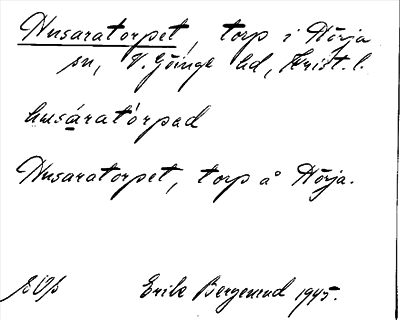 Husaratorpet, torp i Hörja
sn, V. Göinge hd, Krist. l.
husáratòrpad
Husaratorpet, torp å Hörja.
Erik Bergemud 1945.